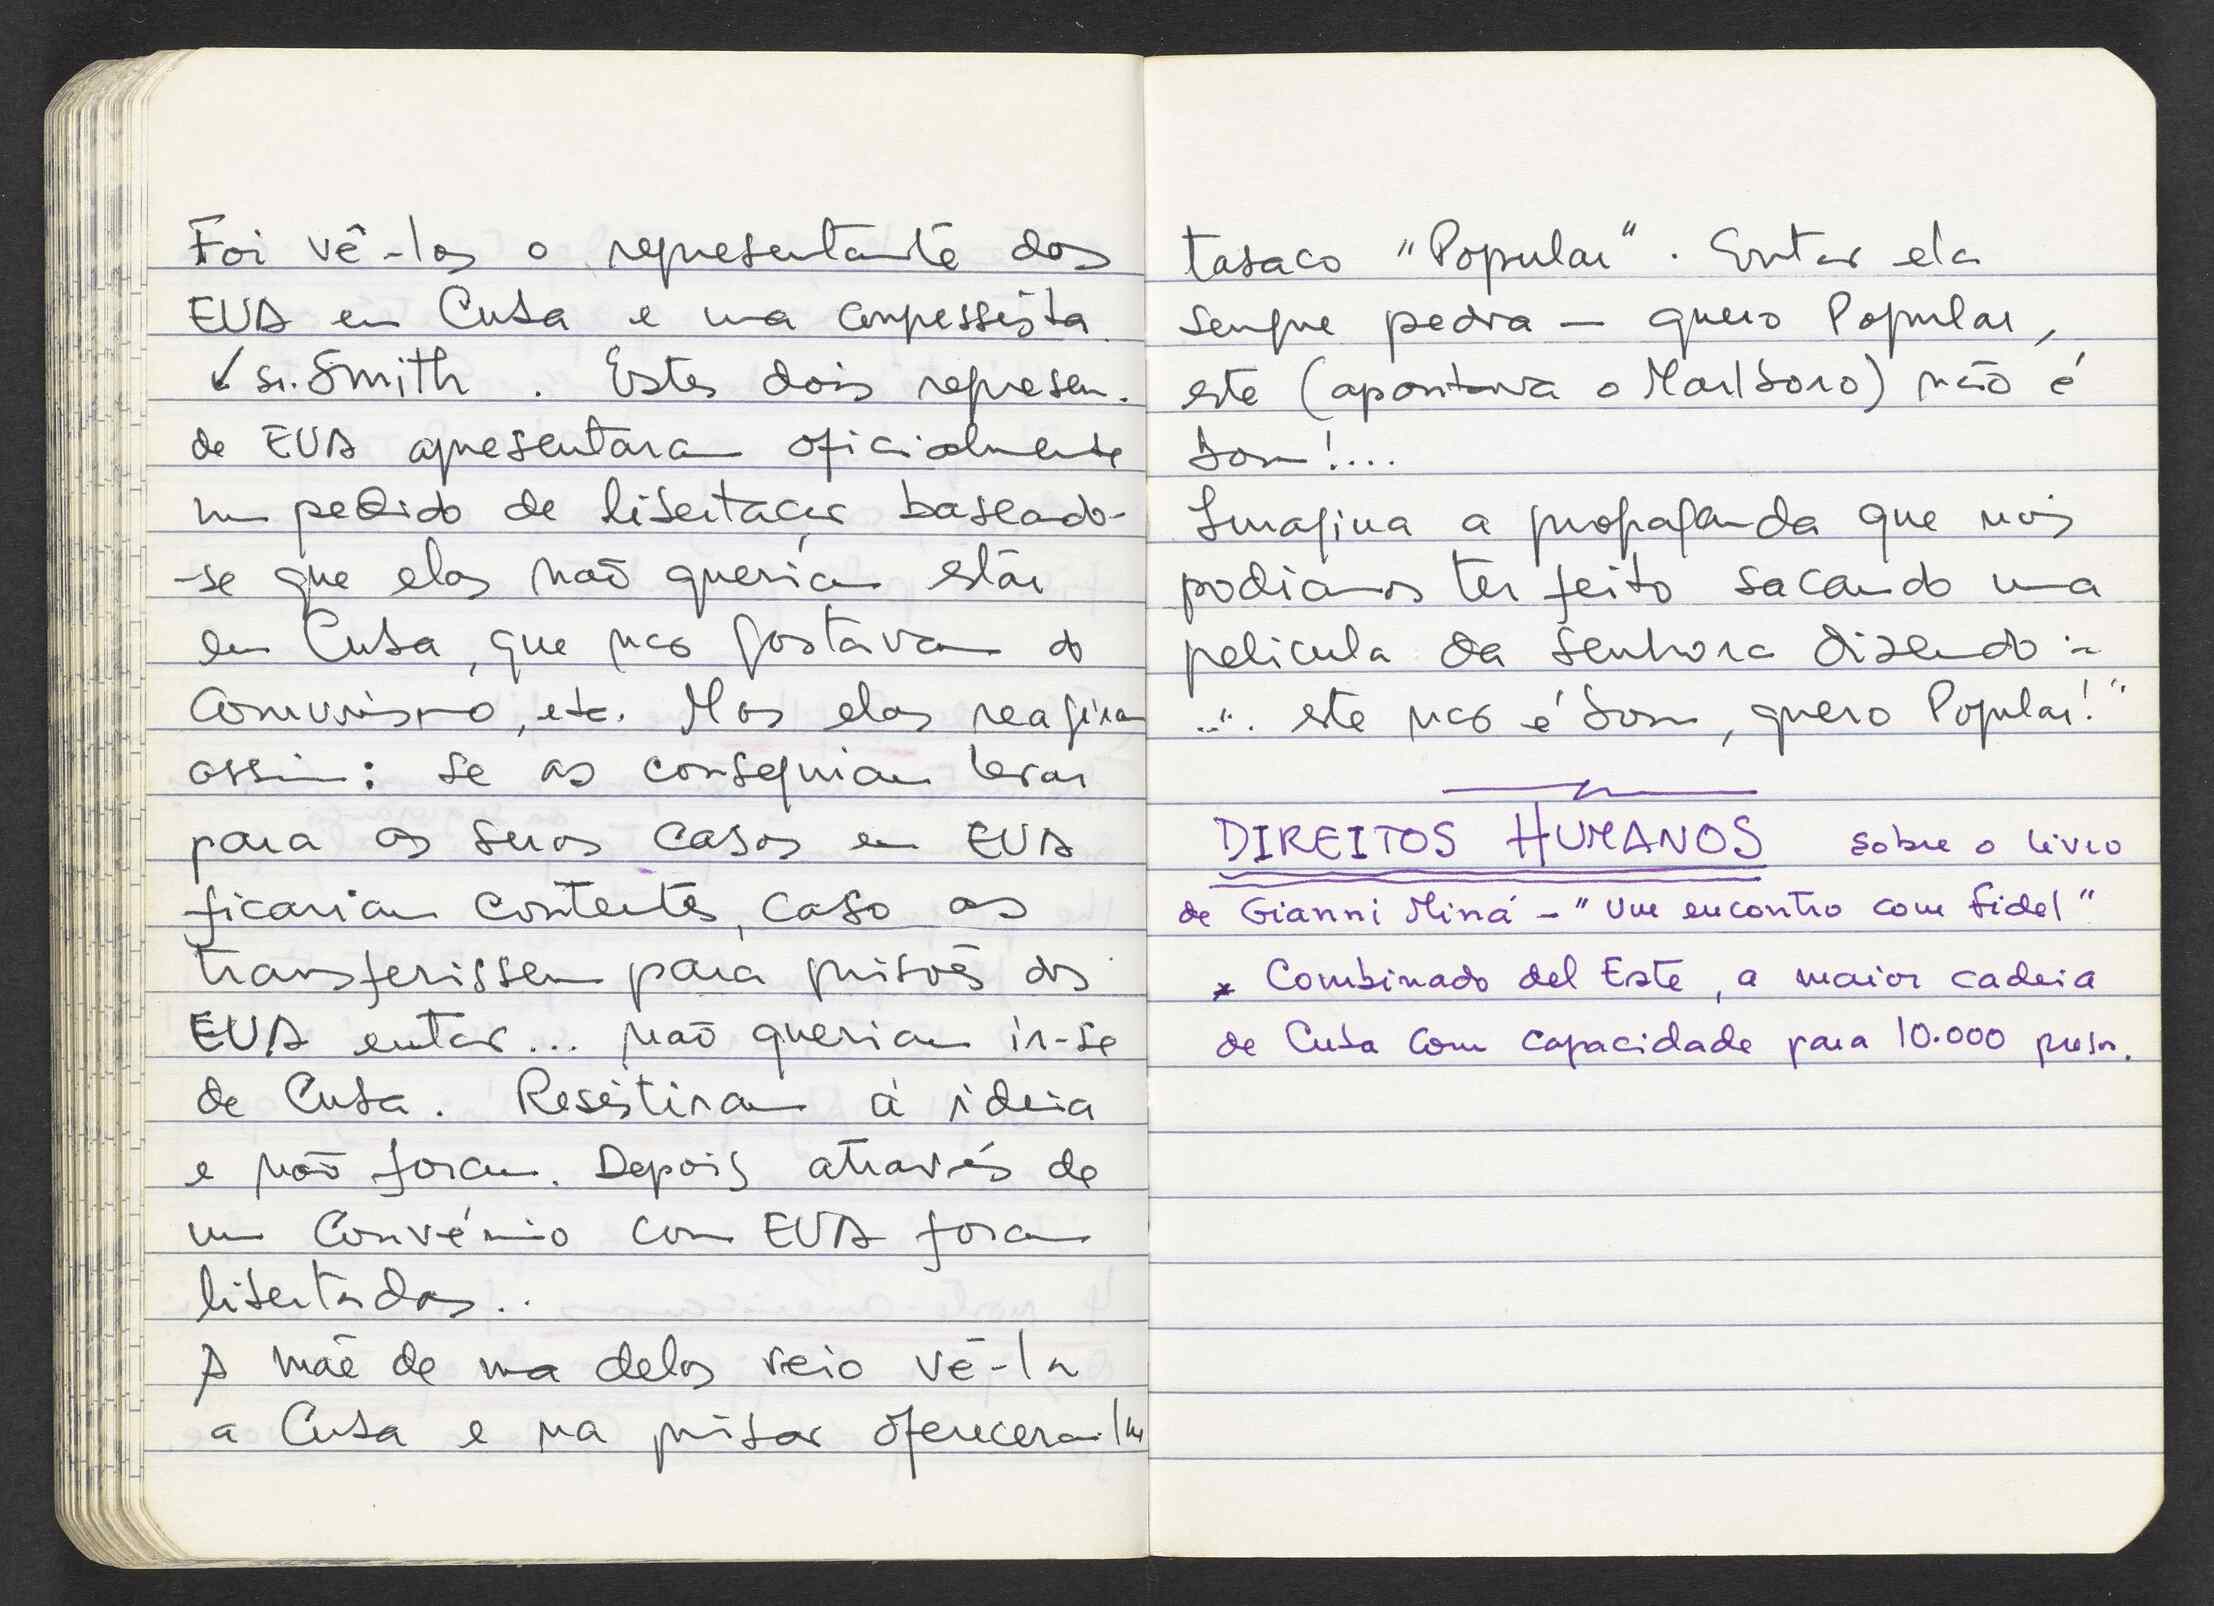 Foi vê-las o representante dos
EUA em Cuba e uma congressista
↙ sr. Smith . Estes dois represen.
de EUA apresentaram oficialmente
um pedido de libertação baseado-
-se que elas não queriam estar
em Cuba, que não gostavam do
comunismo, etc. Mas elas reagiram
assim: se as conseguiam levar
para as suas casas em EUA
ficariam contentes, caso as
transferissem para prisões dos
EUA então... não queriam ir-se
de Cuba. Resistiram à ideia
e não foram. Depois através de
um Convénio com EUA foram
libertadas..
A mãe de uma delas veio vê-la
a Cuba e na prisão ofereceram-lhe
tabaco "Popular". Então ela
sempre pedia — quero Popular,
este (apontava o Marlboro) não é
bom!....
Imagina a propaganda que nós
podíamos ter feito sacando uma
pelicula da senhora dizendo:
..". este não é bom, quero Popular!"
DIREITOS HUMANOS sobre o livro
de Gianni Miná - "Um encontro com Fidel"
* Combinado del Este, a maior cadeia
de Cuba com capacidade para 10.000 presos.